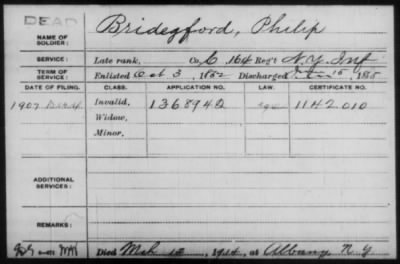 DEAD
Bridegford, Philip
NAME OF SOLDIER:
SERVICE: Late rank, Co. C, 164 Reg't N.Y. Inf
TERM OF SERVICE: Enlisted Oct 3, 1862 Discharged 15, 1865
DATE OF FILING. CLASS. APPLICATION NO. LAW. CERTIFICATE NO.
1907 Invalid, 1368942 1142010
Widow,
Minor,
ADDITIONAL SERVICES:
REMARKS:
Died Mch 15 1914, at Albany N Y